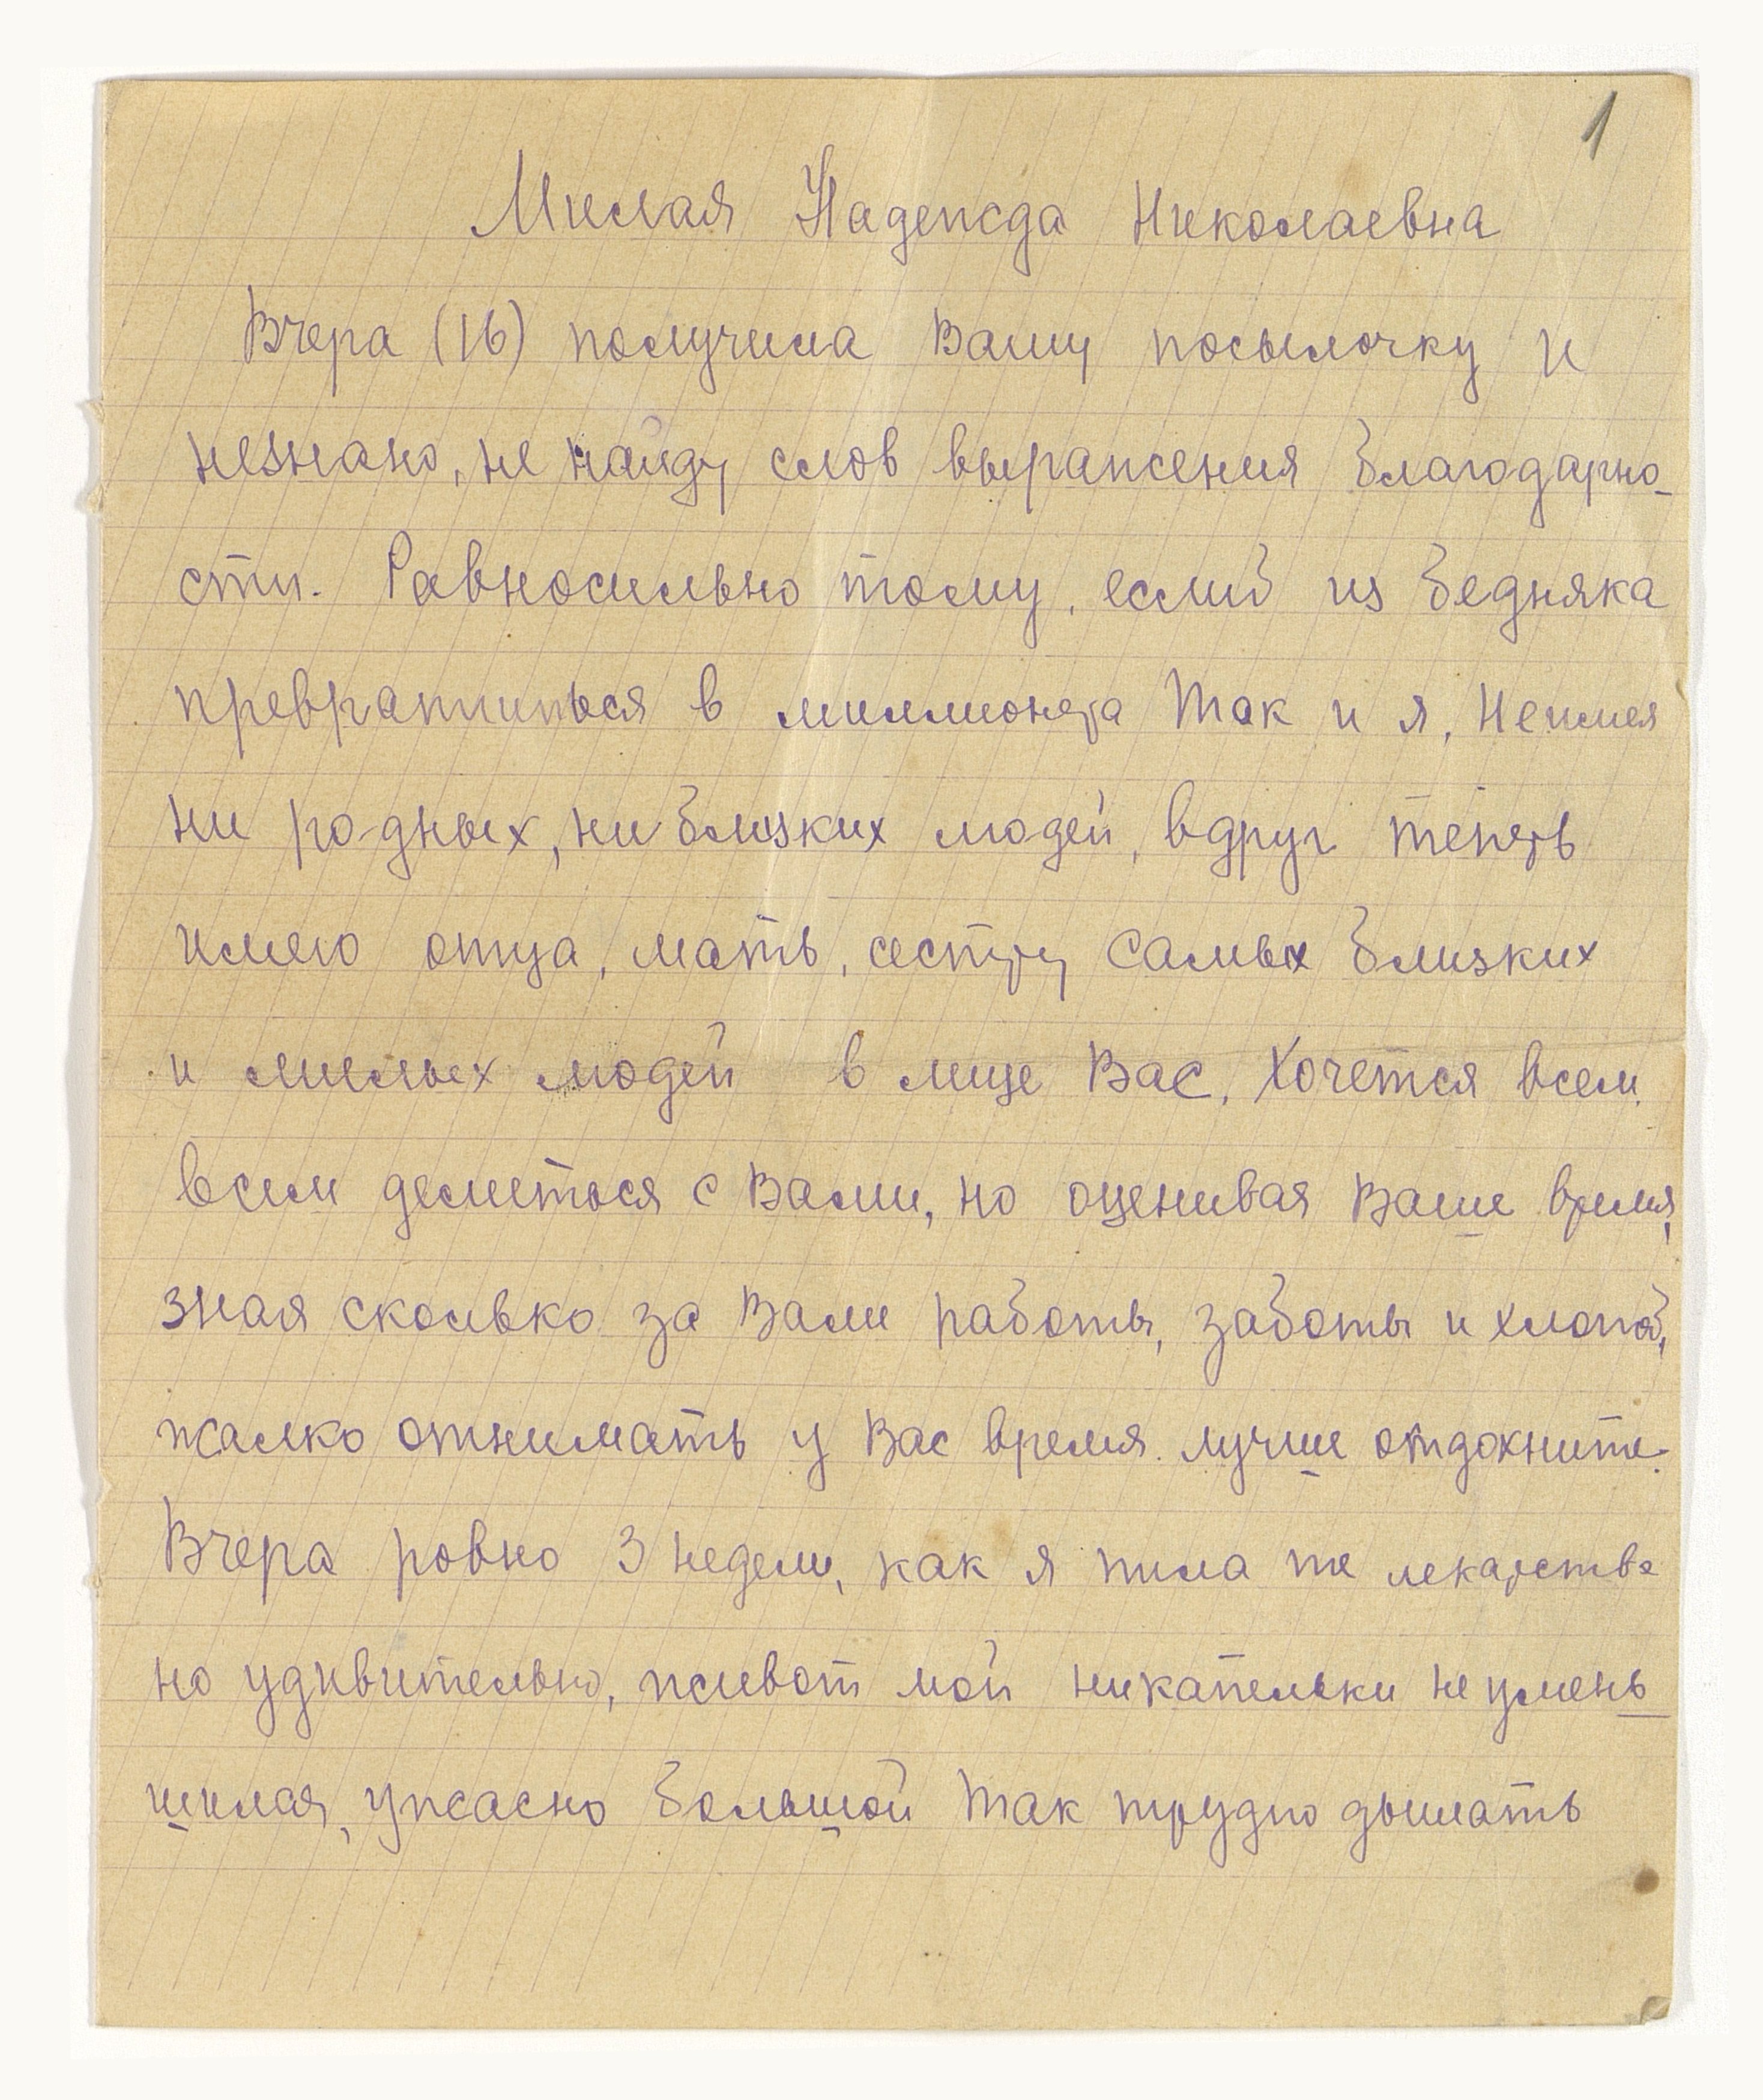 1
Милая Надежда Николаевна
Вчера (16) получила Вашу посылочку и
незнаю, не найду слов выражения благодарно-
сти. Равносильно тому, еслиб из бедняка
превратиться в миллионера Так и я, Неимея
ни родных, ни близких людей, вдруг теперь
имею отца, мать, сестру самых близких
и милых людей в лице Вас. Хочется всем,
всем делиться с Вами, но оценивая Ваше время,
зная сколько за Вами работы, заботы и хлопот,
жалко отнимать у Вас время. лучше отдохните.
Вчера ровно 3 недели, как я пила те лекарства
но удивительно, живот мой никапельки не умень
шился, ужасно большой Так трудно дышать